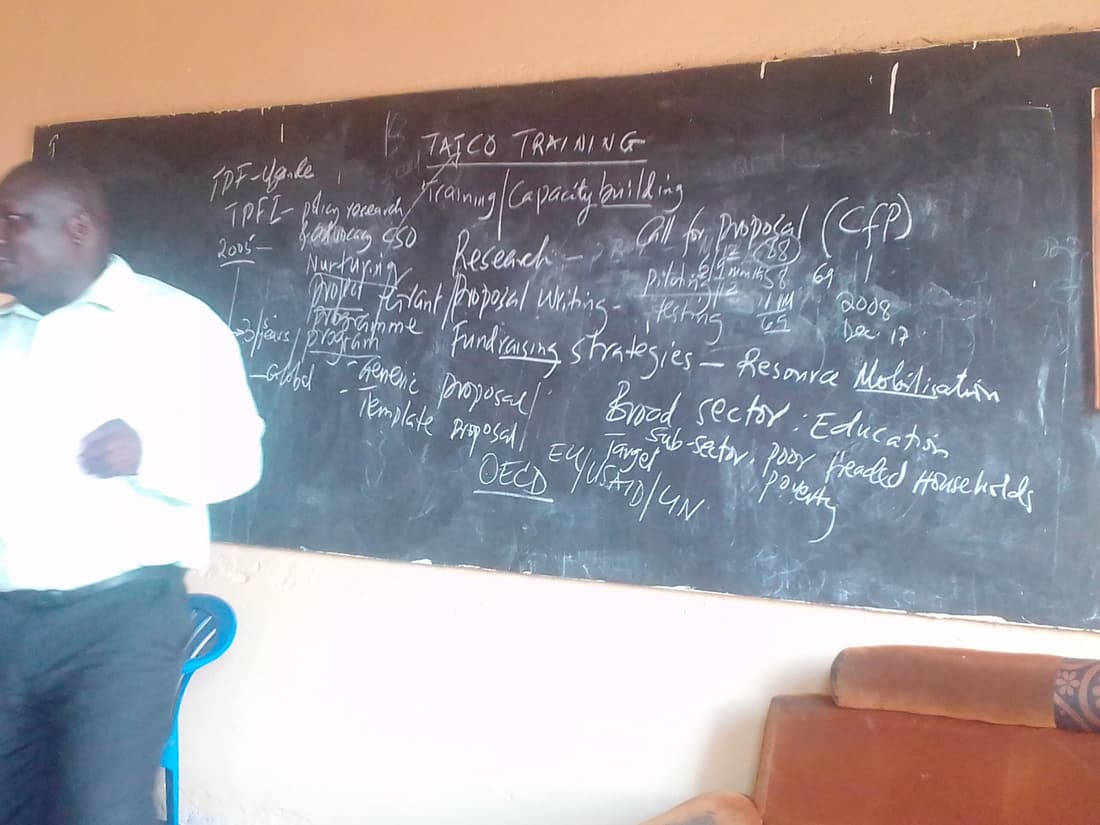 TATCO TRAINING
Training/Capacity building
TPF-Uganda
TPFI- policy research
& advocacy CSO
2005-
Nurturing
project
programme
3/years/program
-Global
- Generic proposal/
- Template proposal/
Research -
/proposal Writing -
Fundraising strategies - Resource Mobilisation
Call for proposal (CfP)
testing
69
2008
Dec. 17
Broad sector: Education
Sub-sector. poor Headed Households
Target
poverty
OECD EU/USAID/UN